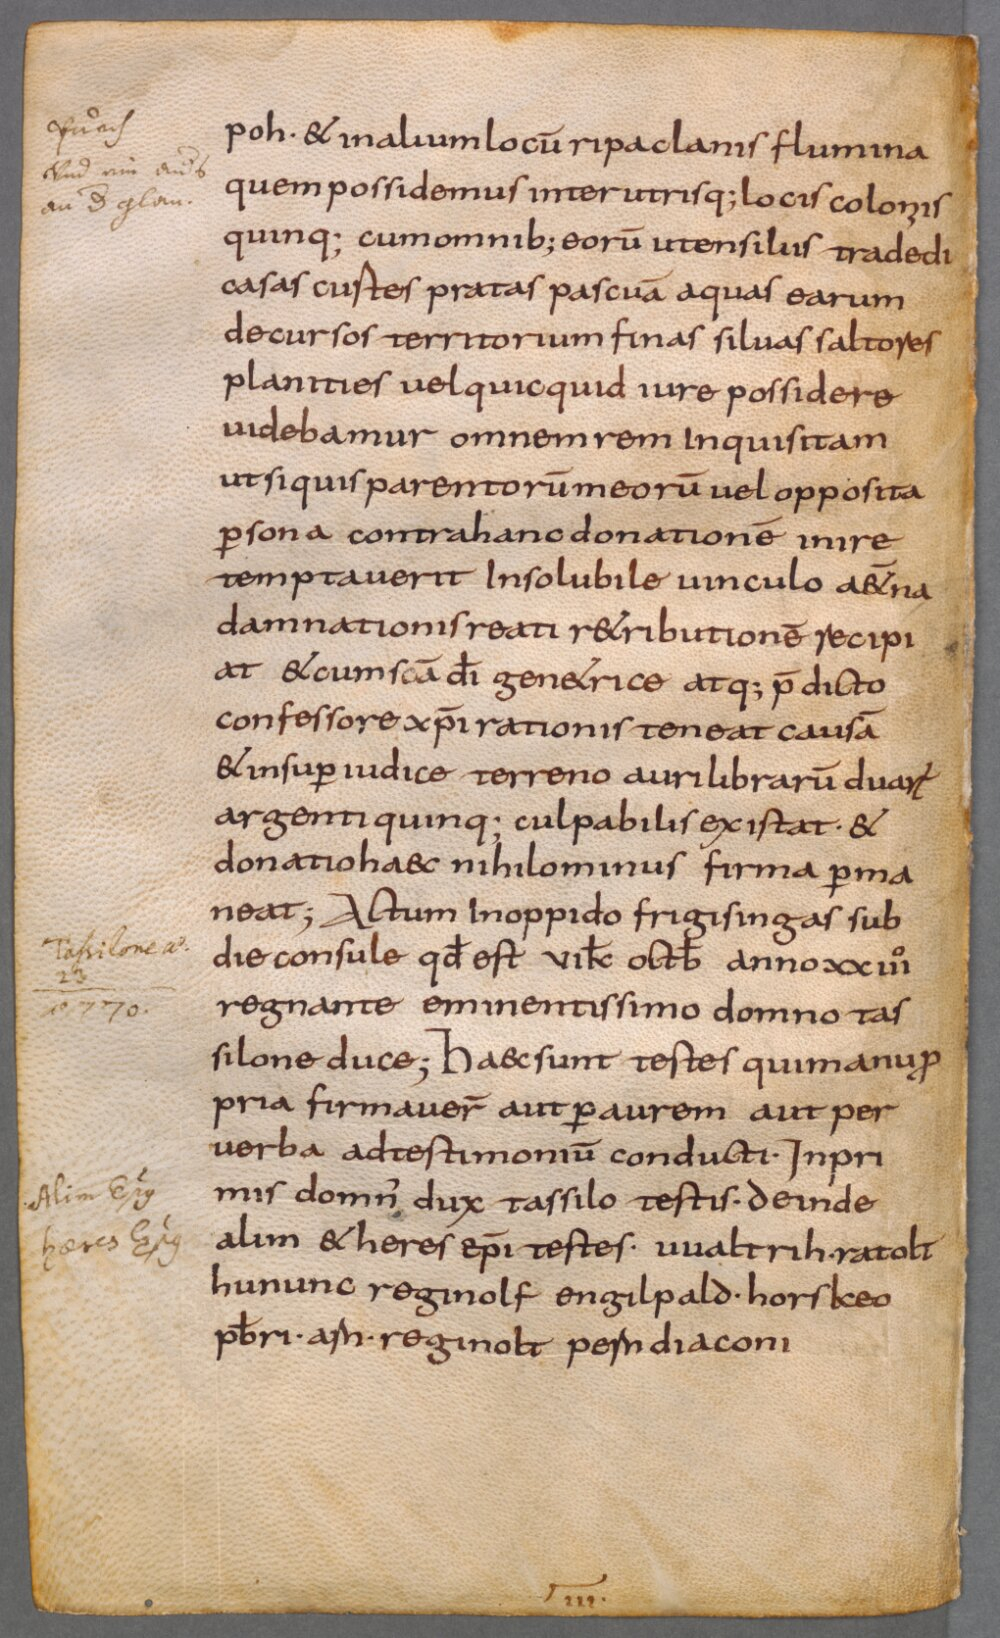 poh· & in alium locū ripa clanis flumina
quem possidemus inter utrisq; locis colonis
quinq; cum omnib; eorū utensiliis tradedi
casas custes pratas pascuā aquas earum
decursos territorium finas siluas saltores
planities uel quicquid iure possidere
uidebamur omnem rem Inquisitam
ut si quis parentorū meorū uel opposita
p̱sona contra hanc donationē inire
temptauerit Insolubile uinculo a&̄na
damnationis reati r&ributionē recipi
at & cum scā dī gen&rice atq; p̄dicto
confessore xp̄i rationis teneat causā
& insup̱ iudice terreno auri librarū duaꝝ
argenti quinq; culpabilis existat· &
donatio haec nihilominus firma p̱ma
neat; Actum In oppido frigisingas sub
die consule qđ est vii kł octb̄ anno xxiiiº
regnante eminentissimo domno tas
silone duce; Haec sunt testes qui manu ꝓ
pria firmauer̄ aut p̱ aurem aut per
uerba ad testimoniū conducti· Inpri
mis domn̄ dux tassilo testis· deinde
alim & heres ep̄i testes· uualtrih· ratolt
hununc reginolf engilpald· horskeo
pb̄ri· asn· reginolt pesn diaconi
an đ glan.
Tassilone
23
1770.
Alim Ep̄g
hæres Ep̄g
III·